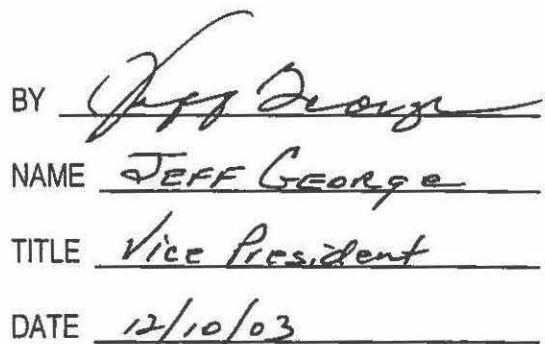 BY Jeff George
NAME JEFF GEORGE
TITLE Vice President
DATE 12/10/03